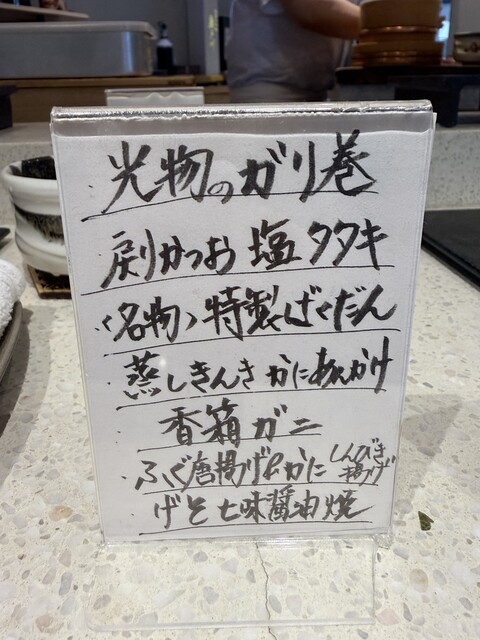 光物のガリ巻
戻りかつお 塩タタキ
〈名物〉特製ばくだん
蒸しきんき かにあんかけ
香箱ガニ
ふぐ唐揚げ&かにしんびき揚げ
げそ七味醤油焼